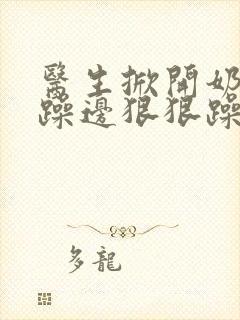 醫生掀開奶
躁邊狠狠躁
多龍